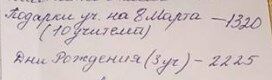 Подарки уч. на 8 Марта – 1320
(10 учителей)
Дни Рождения (3 уч) – 2225